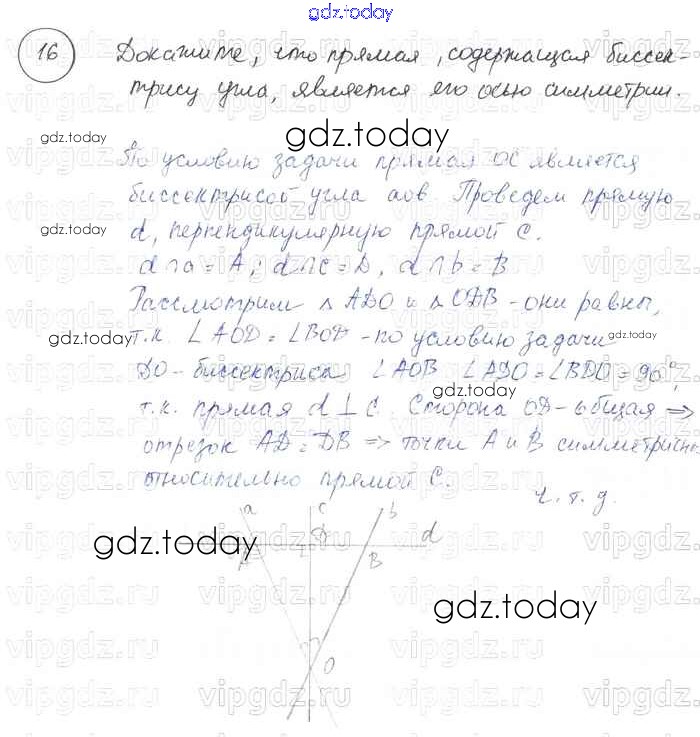 gdz.today
16 Докажите, что прямая, содержащая биссек-
трису угла, является его осью симметрии.
gdz.today
По условию задачи прямая ОС является
биссектрисой угла аов. Проведем прямую
gdz.today
d, перпендикулярную прямой С.
d∩a = A; d∩c = D, d∩b = B
Рассмотрим △ ADO и △ ODB - они равны,
gdz.today т.к. ∠AOD = ∠BOD - по условию задачи gdz.today
DO - биссектриса ∠AOB ∠ADO = ∠BDO = 90°,
gdz.today
т.к. прямая d ⊥ C. Сторона OD - общая ⇒
отрезок AD = DB ⇒ точки A и B симметричн
относительно прямой С.
ч.т.д.
a c b
gdz.today D d
B
gdz.today
O
vipgdz.ru